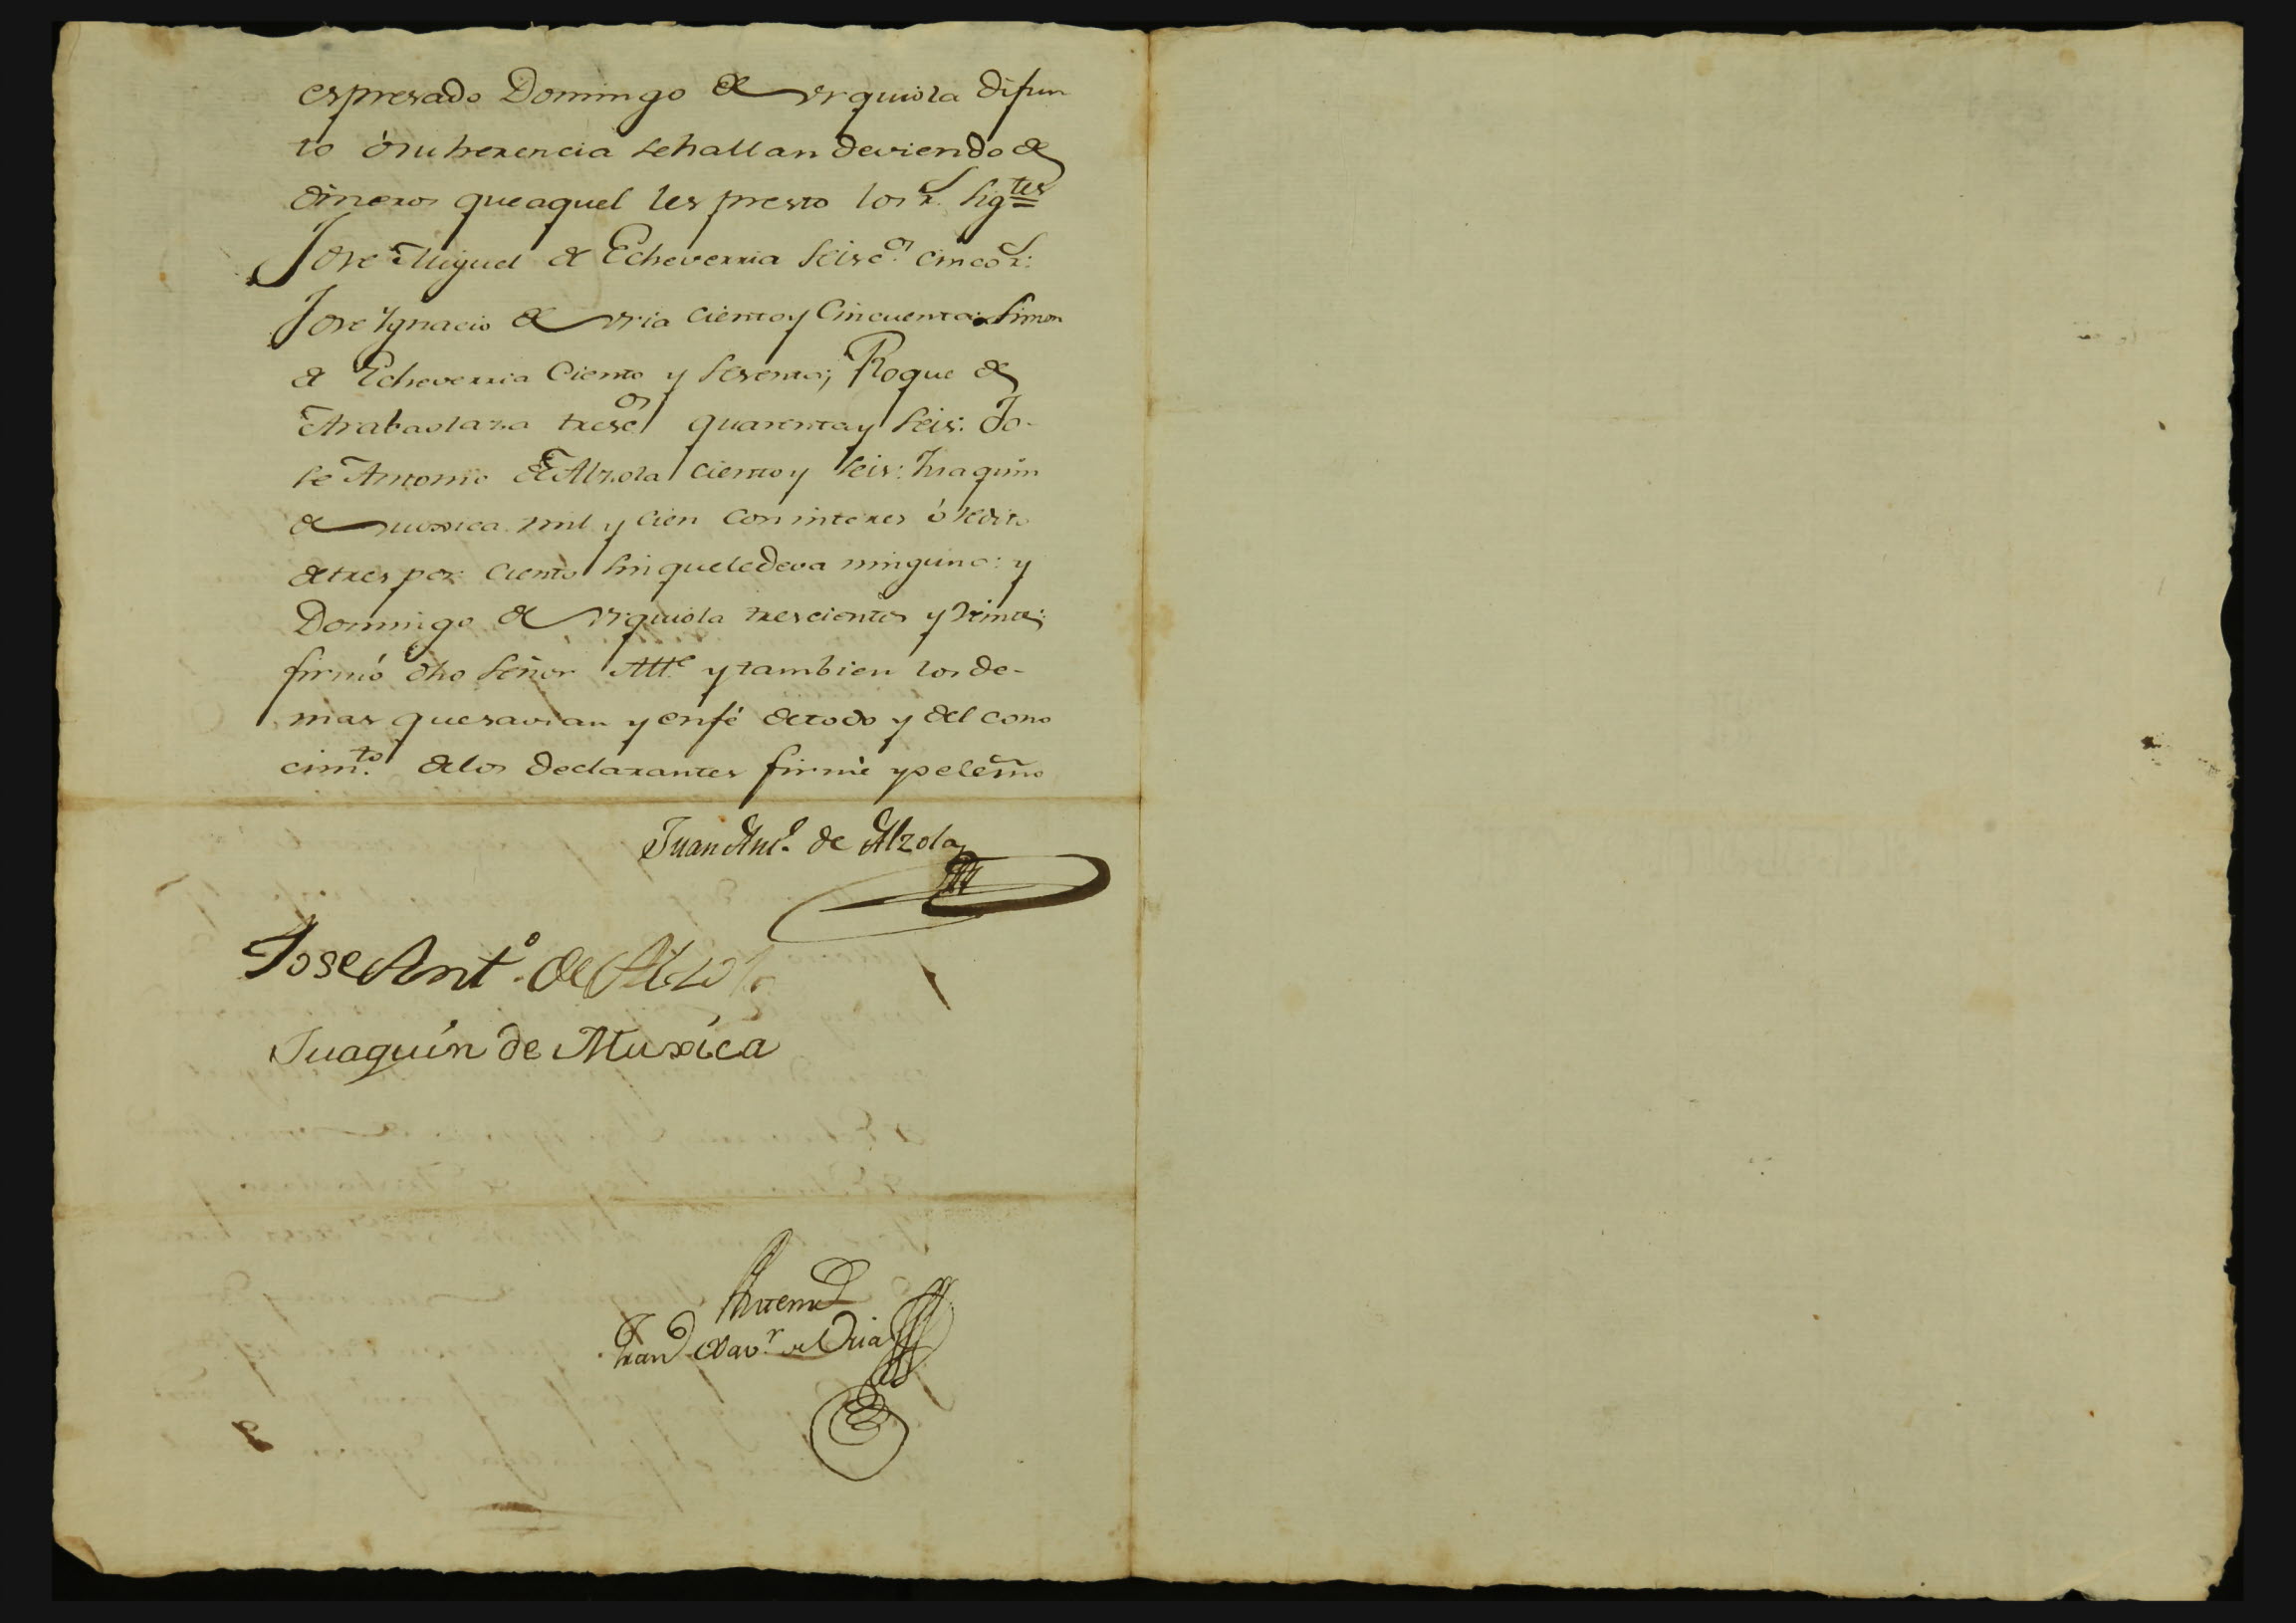 espresado Domingo de Vrquiola difun
to ó su herencia se hallan deviendo de
dineros que aquel les presto los r.^s sig^tes
Jose Miguel de Echeverria seisc.^os cinco r.^s:
Jose Ygnacio de Vria ciento y Cincuenta: Simon
de Echeverria Ciento y sesenta; Roque de
Arabaolaza tresc^os quarenta y seis: Jo-
se Antonio de Alzola ciento y seis: Juaquin
de Muxica mil y cien con interes ó redito
de tres por ciento sin que le deva ninguno: y
Domingo de Vrquiola trescientos y veinte;
firmó dho señor Alt.^e y tambien los de-
mas que savian y en fé de todo y del cono
cim.^to de los declarantes firmé yo el esño
Juan Ant.^o de Alzola
Jose Ant.^o de Alzola
Juaquin de Muxica
Ante mi
Fran^co Xav.^r de Vria